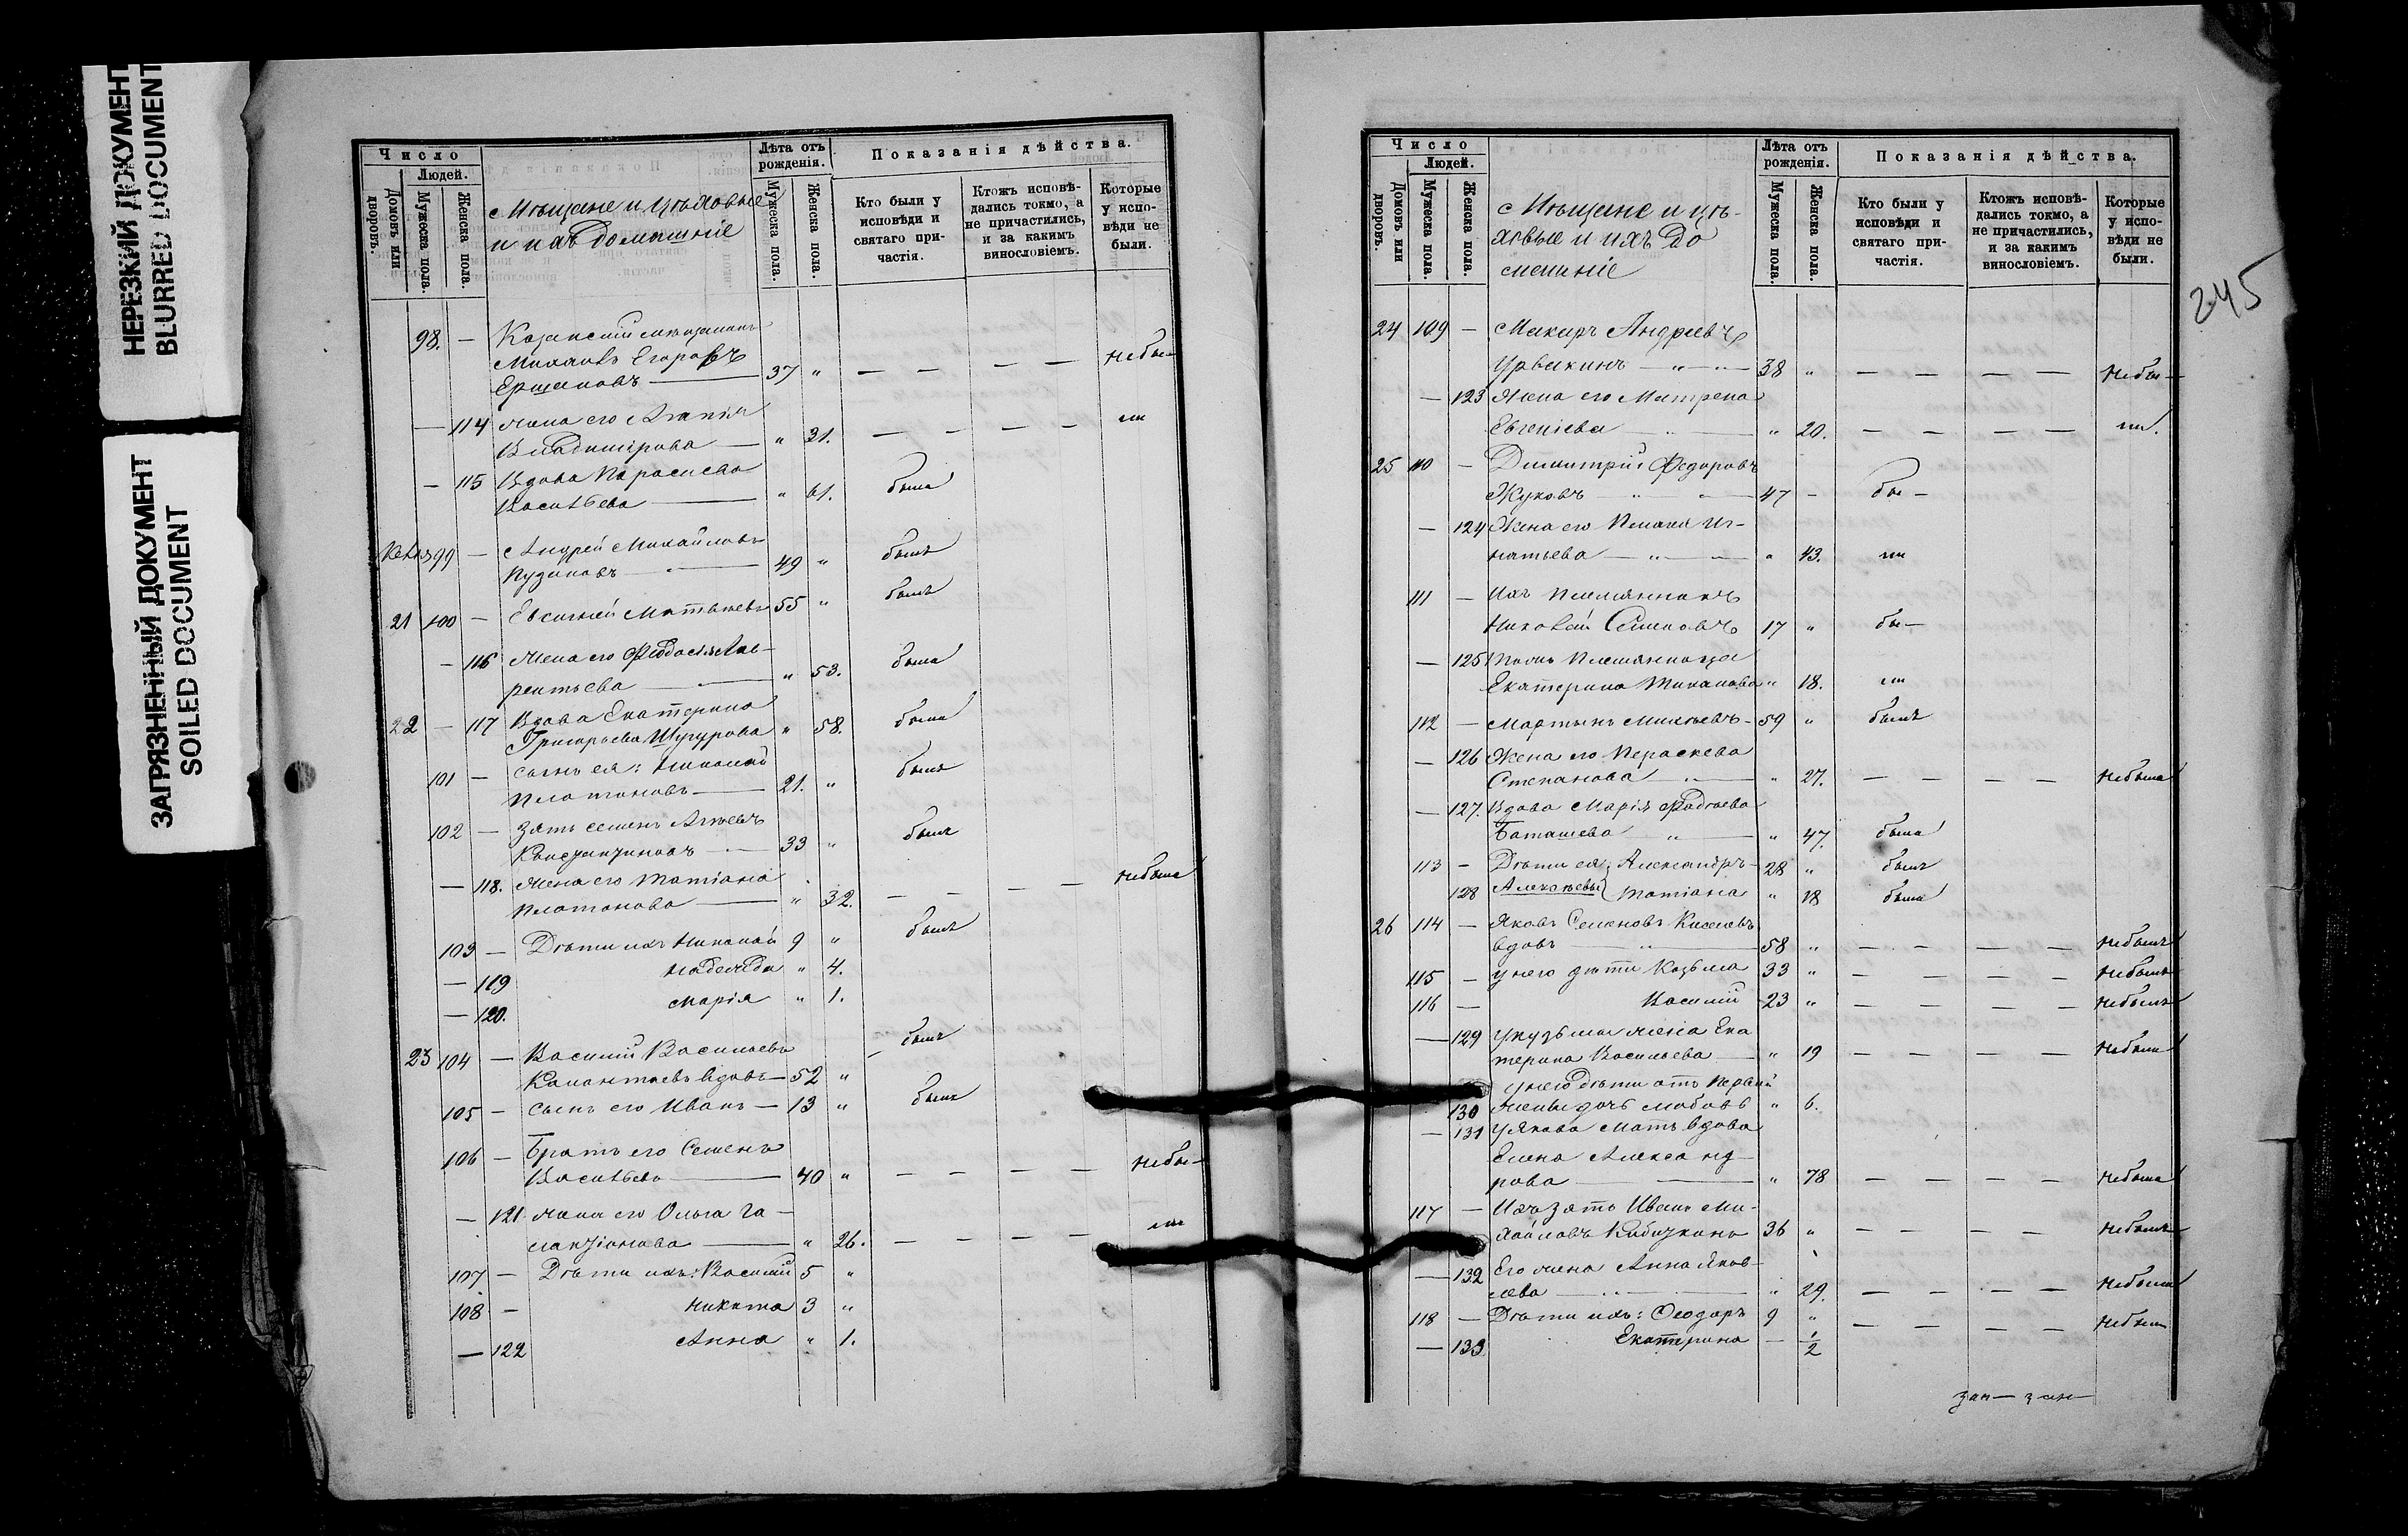 НЕРЕЗКИЙ ДОКУМЕНТ
BLURRED DOCUMENT
ЗАГРЯЗНЕННЫЙ ДОКУМЕНТ
SOILED DOCUMENT
Число
Людей.
Домовъ или дворовъ.
Мужеска пола.
Женска пола.
Мѣщане и цѣховые
и ихъ домашніе
Лѣта отъ рожденія.
Мужеска пола.
Женска пола.
Показанія дѣйства.
Кто были у исповѣди и святаго причастія.
Ктожъ исповѣдались токмо, а не причастились, и за какимъ винословіемъ.
Которые у исповѣди не были.
98. — Казанскій мѣщанинъ
Михаилъ Егоровъ
Ершановъ — 37 " — — — — небы—
— 114 жена его
Владимірова — " 31. — — — —
— 115 Вдова Параскева
Васильева — " 61. была
99 — Андрей Михайловъ
49 " былъ
21 100 — Евсигней Матвѣевъ 55 " былъ
— 116 жена его Феодосія Лав-
рентьева — " 53. была
22 — 117 Вдова Екатерина
Григорьева Шугурова " 58. была
101 — сынъ ея: Николай
Платоновъ — 21. " былъ
102 — Зять Семенъ
33 " былъ
— 118. жена его Татіана
Платонова — " 32. — — — — небыла
103 — Дѣти ихъ Николай 9 " былъ
— 119 Надежда " 4.
— 120. Марія " 1.
23 104 — Василій Васильевъ
вдовъ — 52 " былъ
105 — сынъ его Иванъ — 13 " былъ
106 — Братъ его Семенъ
Васильевъ — 40 " — — — — небы—
— 121 жена его Ольга Га-
лактіонова — " 26. — — — —
107 — Дѣти ихъ: Василій 5 "
108 — Никита 3 "
— 122 Анна " 1.
Число
Людей.
Домовъ или дворовъ.
Мужеска пола.
Женска пола.
Мѣщане и цѣ-
ховые и ихъ до
машніе
Лѣта отъ рожденія.
Мужеска пола.
Женска пола.
Показанія дѣйства.
Кто были у исповѣди и святаго причастія.
Ктожъ исповѣдались токмо, а не причастились, и за какимъ винословіемъ.
Которые у исповѣди не были.
245
24 109 — Макаръ Андреевъ
Урвакинъ — " — " — 38 " — — — — небы—
— 123 Жена его Матрена
Евгеніева — " — " 20. — — — —
25 110 — Димитрій Федоровъ
Жуковъ — " — " — 47 — бы—
— 124 Жена его Пелагея Иг-
натьева — " — " 43.
111 — Ихъ племянникъ
Николай Семеновъ 17 " бы—
— 125 племянница
Екатерина " 18.
112 — Мартынъ — 59 " былъ
— 126 Жена его Параскева
Степанова — " — " 27. — — — — небыла
— 127. Вдова Марія Фадѣева
Баташева " — " 47. была
113 — Дѣти ея: Александръ — 28 " былъ
128 Алексѣевы Татіана " 18 была
26 114 — Яковъ Семеновъ Киселевъ
вдовъ — " — 58 " — — — — небылъ
115 — у него дѣти Козьма 33 " — — — — небылъ
116 — Василій 23 " — — — — небылъ
— 129 У Кузьмы жена Ека
терина Васильева — " 19 — — — — небыла
У него дѣти отъ первой
130 жены дочь Любовь " 6.
— 131 У Якова мать вдова
Елена Александ-
рова — " 78 — — — — небыла
117 — Ихъ зять Иванъ Ми-
хайловъ 36 " — — — — небылъ
— 132 Его жена Анна Яков-
лева — " 29. — — — — небыла
118 — Дѣти ихъ: Ѳеодоръ 9 " — — — —
— 133 Екатерина — 1/2